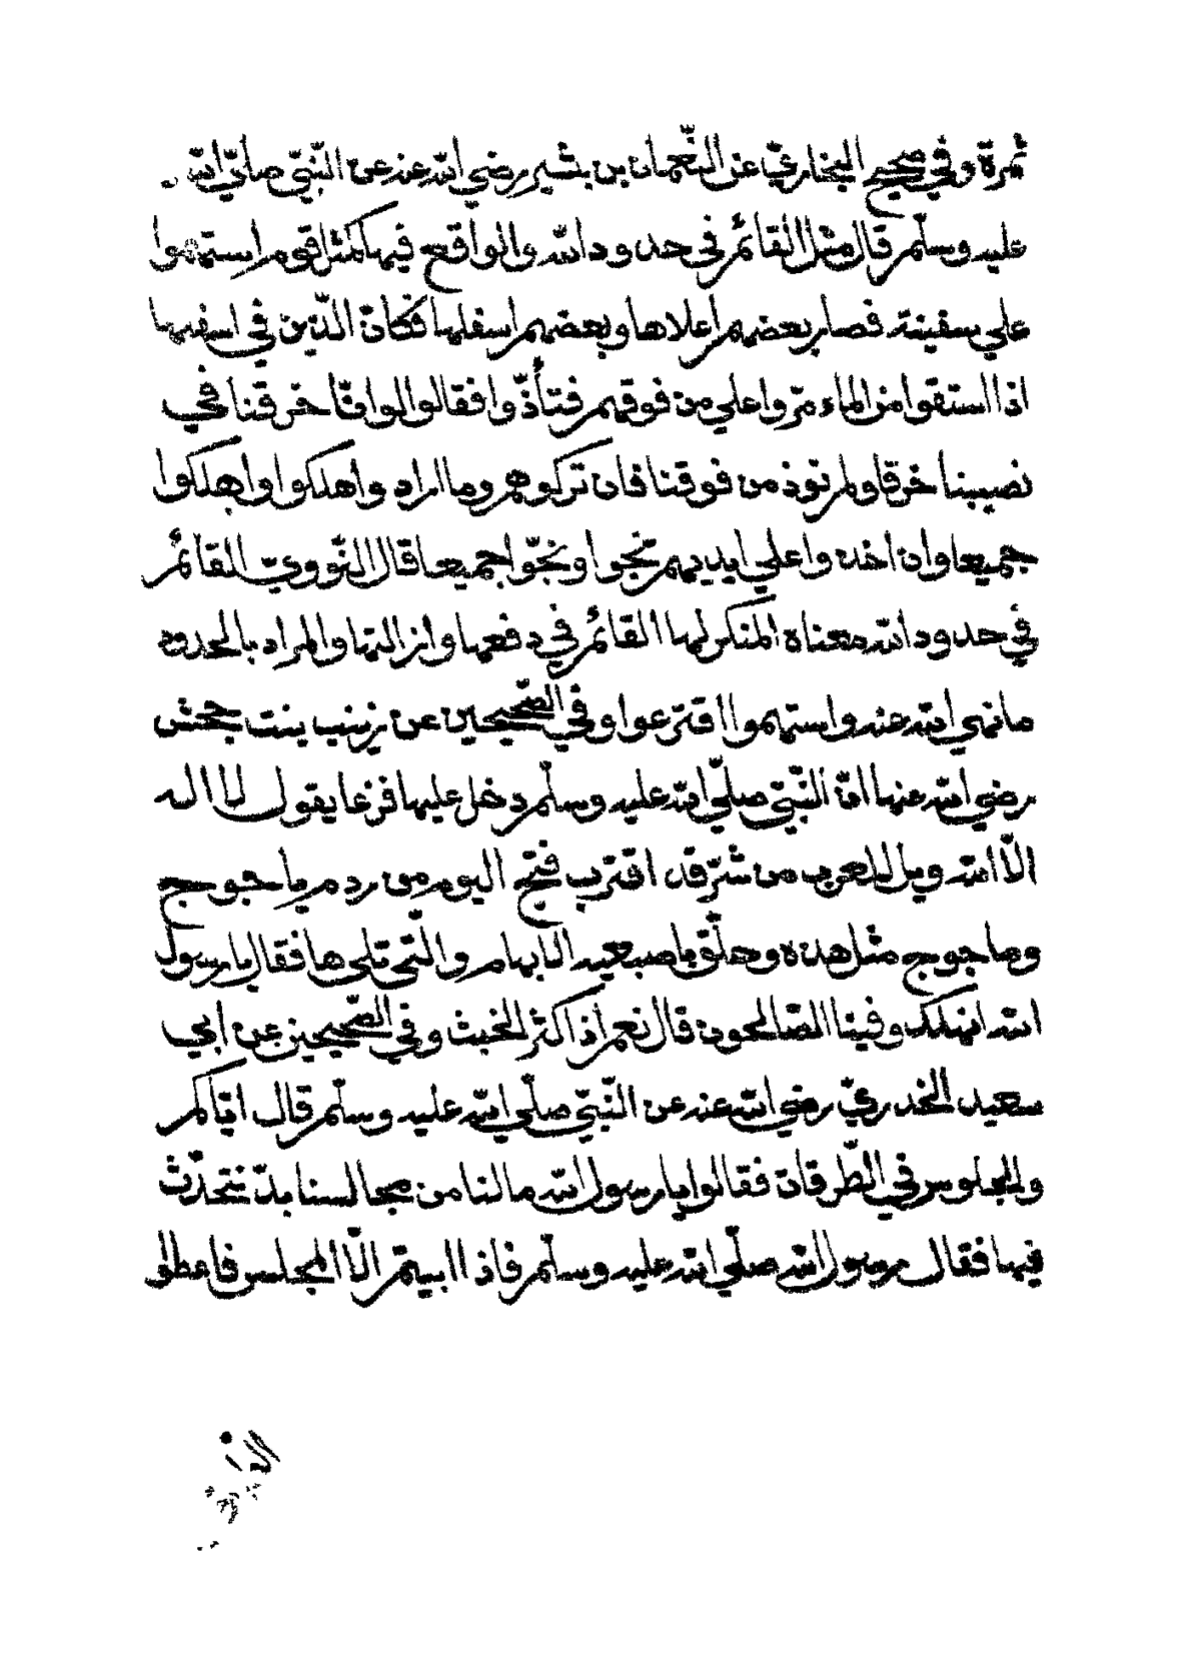 ثمرة وفي صحيح البخاريّ عن النّعمان بن بشير رضي الله عنه عن النّبيّ صلّي الله
عليه وسلّم قال مثل القائم في حدود الله والواقع فيها كمثل قوم استهموا
علي سفينة فصار بعضهم اعلاها وبعضهم اسفلها فكان الّذين في اسفلها
اذا استقوا من الماء مرّوا علي من فوقهم فتأذّوا فقالوا لوا انّا خرقنا في
نصيبنا خرقا ولم نوذ من فوقنا فان تركوهم وما اراد واهلكوا واهلكوا
جميعا وان اخذوا علي ايديهم نجوا ونجّوا جميعا قال النّوويّ القائم
في حدود الله معناه المنكر لها القائم في دفعها وازالتها والمراد بالحدود
ما نهي الله عنه واستهموا اقترعوا وفي الصّحيحين عن زينب بنت جحش
رضي الله عنها انّ النّبيّ صلّي الله عليه وسلّم دخل عليها فزعا يقول لا اله
الّا الله ويل للعرب من شرّ قد اقترب فتح اليوم من ردم ياجوج
وماجوج مثل هذه وحلّق باصبعيه الابهام والّتي تليها فقال يا رسول
الله انهلك وفينا الصّالحون قال نعم اذا كثر الخبث وفي الصّحيحين عن ابي
سعيد الخدريّ رضي الله عنه عن النّبيّ صلّي الله عليه وسلّم قال ايّاكم
والجلوس في الطّرقات فقالوا يا رسول الله ما لنا من مجالسنا بدّ نتحدّث
فيها فقال رسول الله صلّي الله عليه وسلّم فاذا ابيتم الّا المجلس فاعطوا